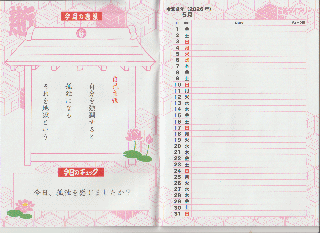 今月の標語
自分を強調すると
孤独になる
それを地獄という
今日のチェック
今日、孤独を感じましたか?
令和8年 (2026年)
5月
1 金
2 土
3 日
4 月
5 火
6 水
7 木
8 金
9 土
10 日
11 月
12 火
13 水
14 木
15 金
16 土
17 日
18 月
19 火
20 水
21 木
22 金
23 土
24 日
25 月
26 火
27 水
28 木
29 金
30 土
31 日